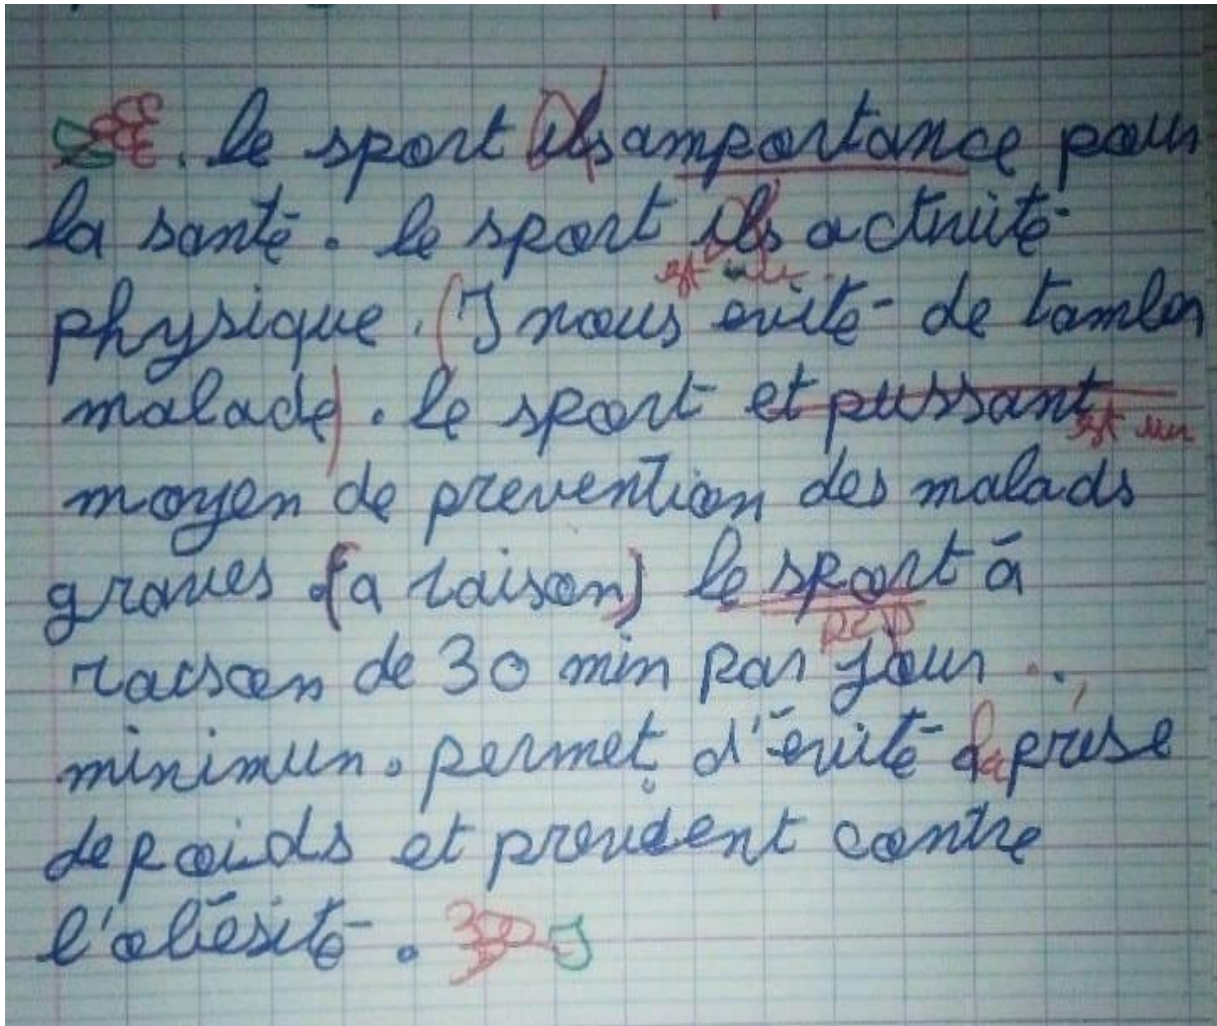 . le sport ils amportance pour
la santé. le sport ils activité
est une
physique. (I nous evité de tomber
malade). le sport et pussant
est un
moyen de prevention des malads
graves (a raison) le sport à
raison de 30 min par jour .
minimun. permet d'évité la prise
de poids et prevident contre
l'obésité.